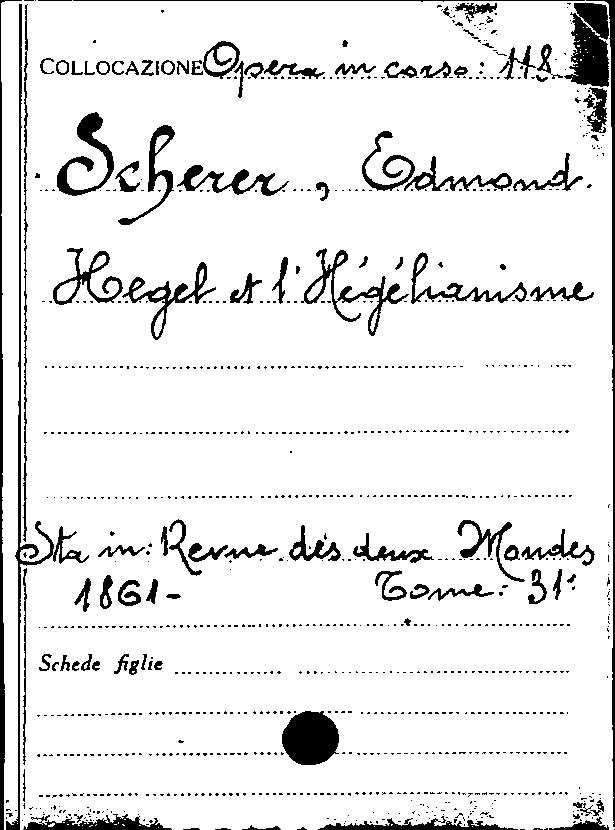 COLLOCAZIONE Opera in corso: 118
Scherer, Edmond.
Hegel et l'Hégélianisme
Sta in: Revue des deux Mondes
1861- Tome: 31e
Schede figlie